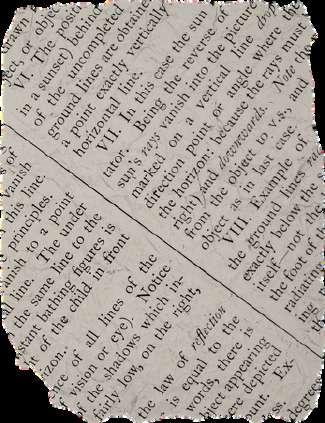 VI. The posit
in a sunset) behind
of the uncompleted
ground lines are obtaine
a point exactly verticall
horizontal line.
VII. In this case the sun
tator. Being the reverse of
sun's rays vanish into the picture
marked on a vertical line
direction point or angle where th
the horizon: because the rays must
right) and downwards. Note
from the object to v.s., and
object as in last case.
VIII. Example of
the ground lines
exactly below the
itself—not the
the foot of
radiating
this line.
principles.
nish to a point
line. The under
the same line to the
bathing figures is
of the child in front
izon.
of all lines of the
vision or eye). Notice
the shadows which in-
fairly low, on the right,
the law of reflection
is equal to the
words, there is
ject appearing
ere depicted
unt. Ex-